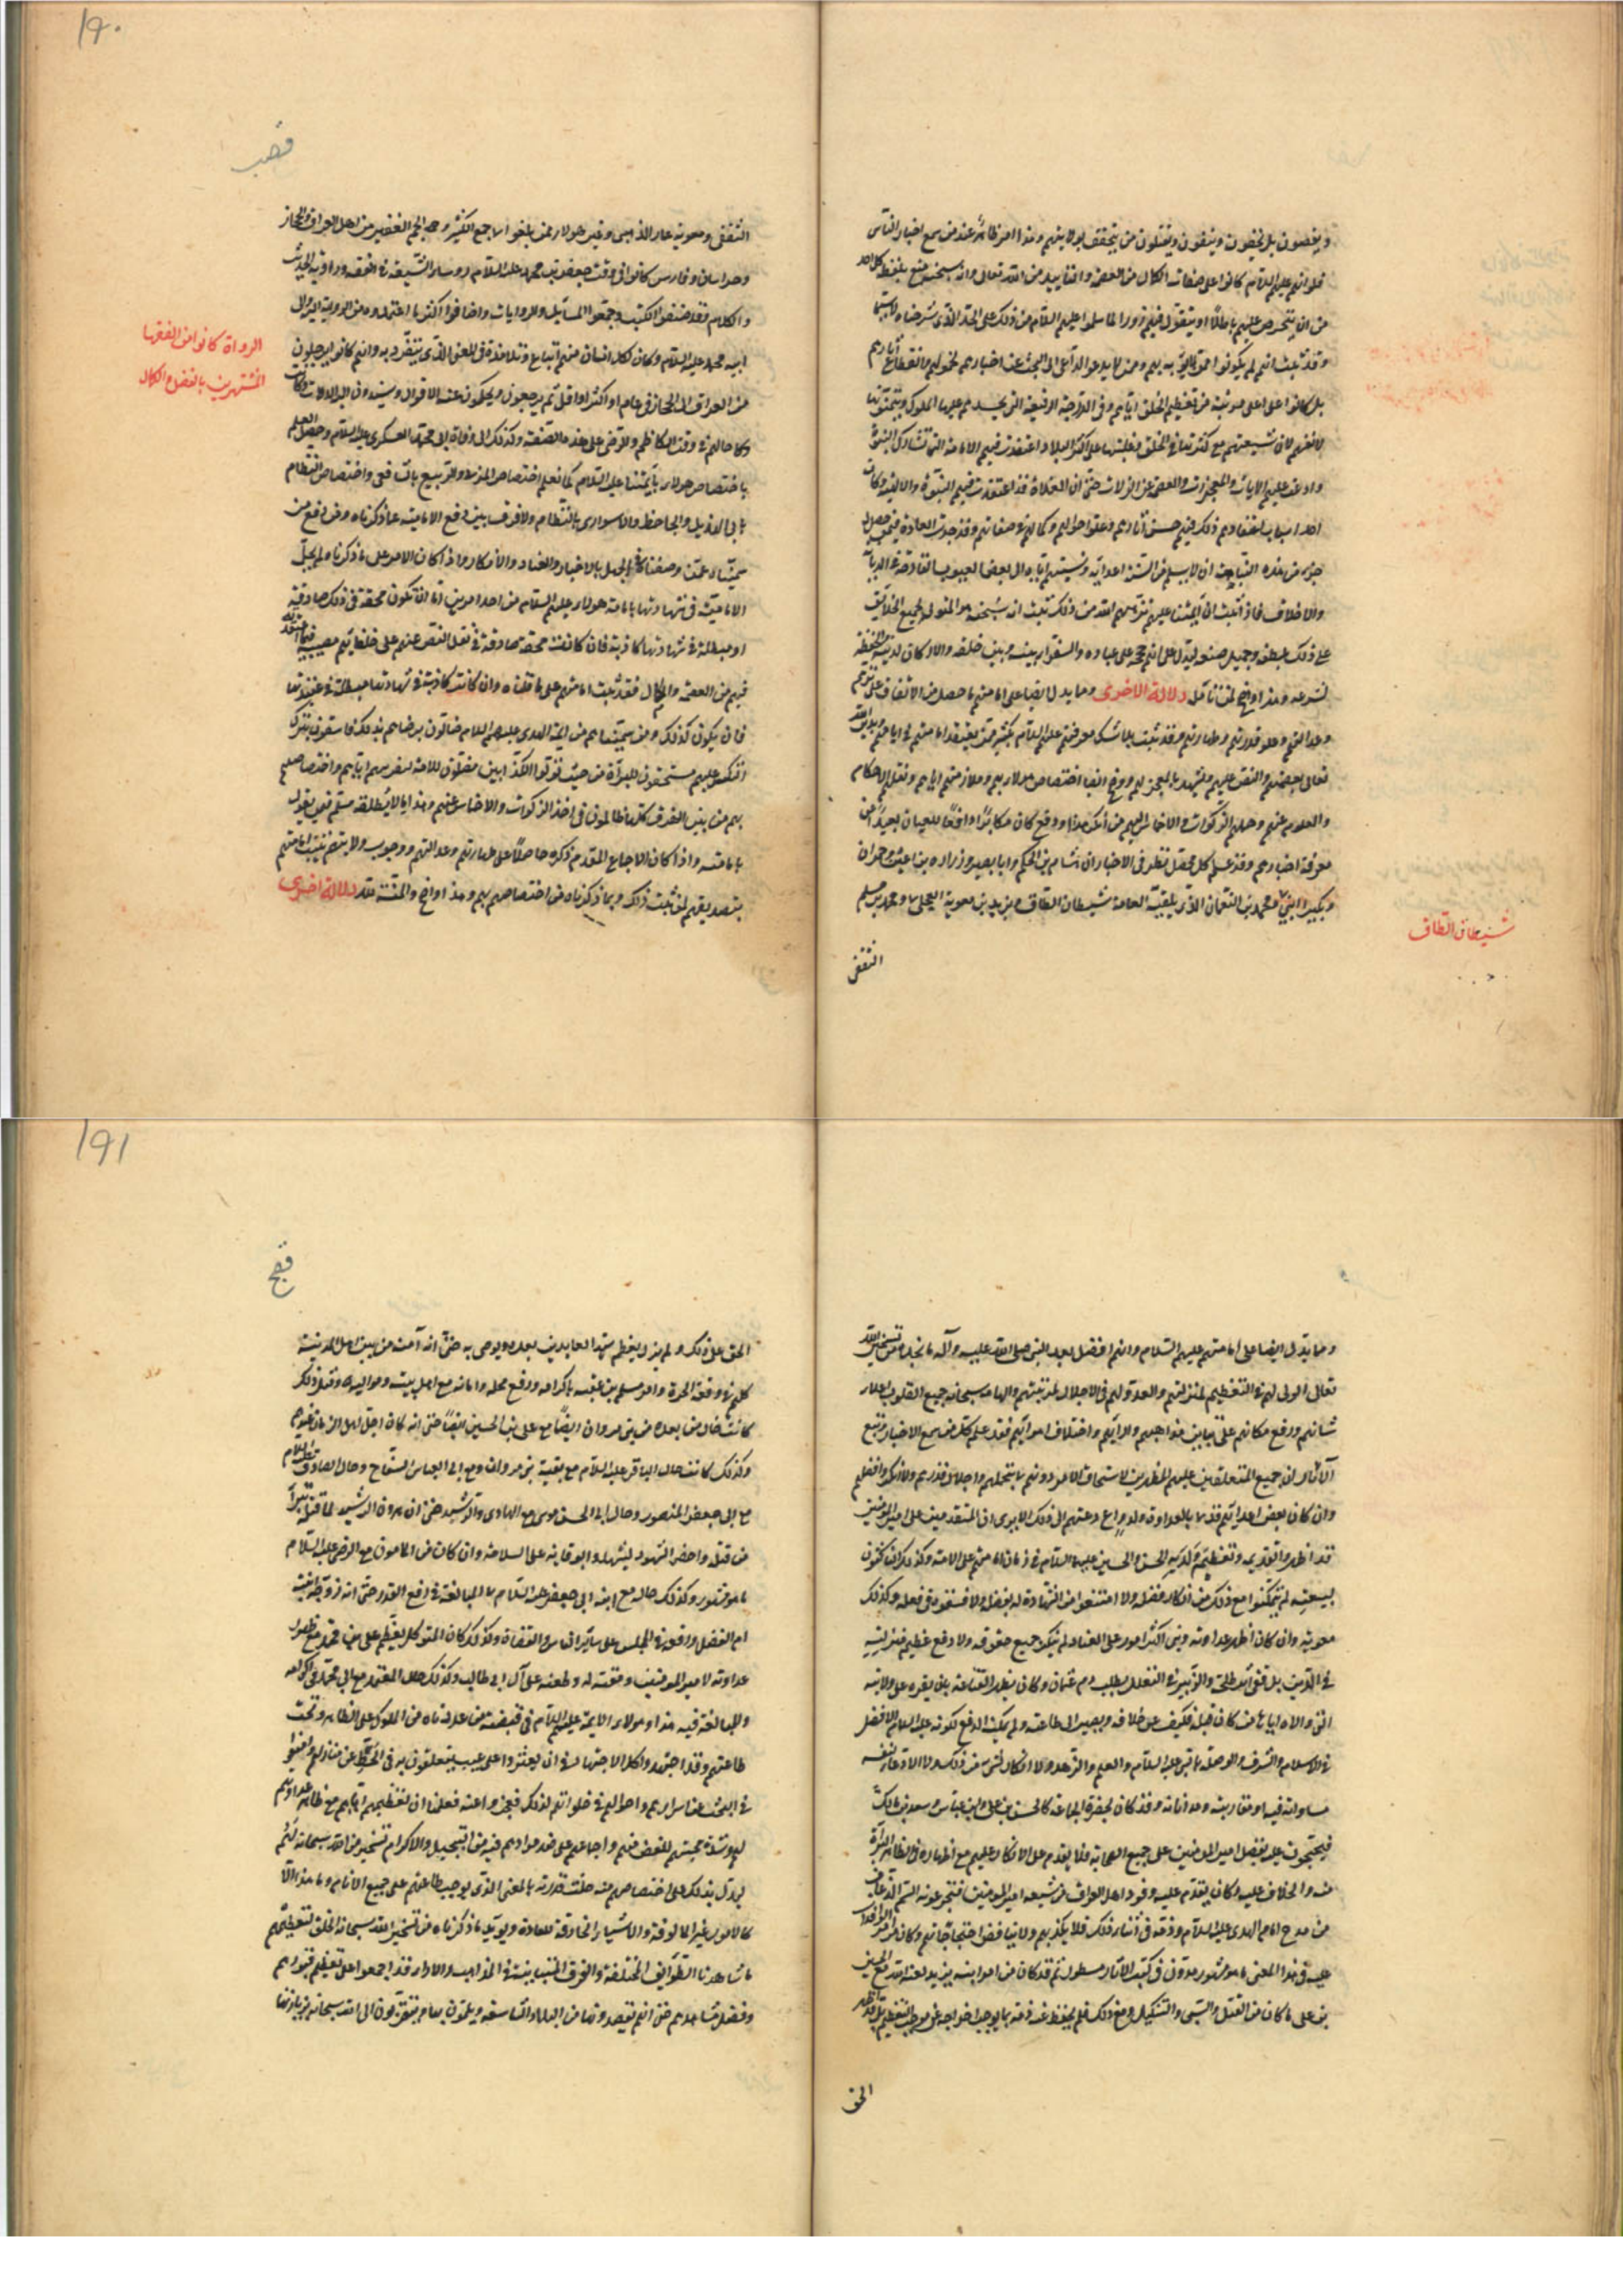 ويقصون بل يخيفون وينفون ويقتلون من يتحقق بولايتهم وهذا امر ظاهر عند من سمع اخبار الناس
فلولا انهم عليهم السلام كانوا على صفات الكمال من العصمة والتأييد من الله تعالى وانه سبحانه منع بلطفه كل احد
من ان يتخرص عليهم باطلا او يتقول فيهم زورا لما سلموا عليهم السلام من ذلك على الحد الذي شرحناه لا سيما
وقد ثبت انهم لم يكونوا ممن لا يؤبه بهم وممن لا يدعو الداعي الى البحث عن اخبارهم لخمولهم وانقطاع آثارهم
بل كانوا على اعلى مرتبة من تعظيم الخلق اياهم وفي الدرجة الرفيعة التي يحسدهم عليها الملوك ويتمنونها
لانفسهم لان شيعتهم مع كثرتها في الخلق وغلبتها على اكثر البلاد اعتقدت فيهم الامامة التي تشارك النبوة
وادعت عليهم الآيات والمعجزات والعصمة عن الزلات حتى ان الغلاة قد اعتقدت فيهم النبوة والالهية وكان
احد اسباب اعتقادهم ذلك فيهم حسن آثارهم وعلو احوالهم وكمالهم في صفاتهم وقد جرت العادة فيمن حصل له
جزء من هذه النباهة ان لا يسلم من السنة اعدائه ونسبتهم اياه الى بعض العيوب القادحة في الديانة
والاخلاق فاذا ثبت ان أئمتنا عليهم نزههم الله من ذلك ثبت انه سبحانه هو المتولي لجميع الخلائق
على ذلك بلطفه وجميل صنعه ليدل على انهم حجته على عباده والسفراء بينه وبين خلقه والاركان لدينه والحفظة
لشرعه وهذا واضح لمن تأمل دلالة اخرى ومما يدل ايضا على امامتهم ما حصل من الاتفاق على برهم
وعدالتهم وعلو قدرهم وطهارتهم وقد ثبت بلا شك معرفتهم عليهم السلام بكثير ممن يعتقد امامتهم في ايامهم ويدين الله
تعالى بعصمتهم والنص عليهم ويشهد بالمعجز لهم ووضح ايضا اختصاص هؤلاء بهم وملازمتهم اياهم ونقلهم الاحكام
والعلوم عنهم وحملهم الزكوات والاخماس اليهم من أنكر هذا ودفع كان مكابرا دافعا للعيان بعيدا من
معرفة اخبارهم وقد علم كل محصل نظر في الاخبار ان هشام بن الحكم وابا بصير وزرارة بن اعين وحمران
وبكير ابني ومحمد بن النعمان الذي يلقبه العامة شيطان الطاق وبريد بن معوية العجلي ومحمد بن مسلم
شيطان الطاق
الثقفى
١٩٠
قصب
الثقفى ومعوية عمار الدهنى وغير هؤلاء ممن بلغوا الجمع الكثير والجم الغفير من اهل العراق والحجاز
وخراسان وفارس كانوا في وقت جعفر بن محمد عليه السلام رؤساء الشيعة في الفقه ورواية الحديث
والكلام وقد صنفوا الكتب وجمعوا المسائل والروايات واضافوا اكثر ما اعتمدوه من الرواية اليه والى
ابيه محمد عليه السلام وكان لكل انسان منهم اتباع وتلامذة في المعنى الذي يتفرد به وانهم كانوا يرحلون
من العراق الى الحجاز في عام او اكثر او اقل ثم يرجعون ويحكون عنه الاقوال ويسندون اليه الدلالات وكان
وكا حالهم في وقت الكاظم والرضى على هذه الصفة وكذلك الى وفاة ابي محمد العسكري عليه السلام وحصل العلم
باختصاص هؤلاء بأئمتنا عليه السلام كما نعلم اختصاص المزني والربيع بالشافعي واختصاص النظام
بابى الهذيل والجاحظ والاسوارى بالنظام ولا فرق بين دفع الامامية عما ذكرناه ومن دفع من
سميناه عمن وصفناه في الجهل بالاخبار والعناد والانكار واذا كان الامر على ما ذكرناه لم يخل
الامامية في شهادتها بامامة هؤلاء عليهم السلام من احد امرين اما ان تكون محقة في ذلك صادقة
او مبطلة في شهادتها كاذبة فان كانت محقة صادقة في نقل النص عنهم على خلفائهم مصيبة فيما اعتقدته
فيهم من العصمة والكمال فقد ثبت امامتهم على ما قلناه وان كانت كاذبة في شهادتها مبطلة في عقيدتها
فلن يكون كذلك ومن سميناهم من ائمة الهدى عليهم السلام ضالون برضاهم بذلك فاسقون بترك
النكير عليهم مستحقون للبراءة من حيث تولوا الكذابين مضلون للامة لتقريبهم اياهم واختصاصهم
بهم من بين الفرق كلها ظالمون في اخذ الزكوات والاخماس عنهم وهذا ما لا يطلقه مسلم فيمن يقول
بامامته واذا كان الاجماع المقدم ذكره حاصلا على طهارتهم وعدالتهم ووجوب ولايتهم ثبتت امامتهم
بتصديقهم لمن ثبت ذلك وبما ذكرناه من اختصاصهم بهم وهذا واضح والمنة لله دلالة اخرى
الرواة كانوا من الفقها
المشتهرين بالفضل والكمال
ومما يدل ايضا على امامتهم عليهم السلام وانهم افضل بعد النبي صلى الله عليه وآله ما نجده من تسخير الله
تعالى الولى لهم في التعظيم لمنزلتهم والعدو لهم في الاجلال لمرتبتهم والهامه سبحانه جميع القلوب اعلاء
شانهم ورفع مكانهم على تباين مذاهبهم وآرائهم واختلاف اهوائهم فقد علم كل من سمع الاخبار وتتبع
الآثار ان جميع المتغلبين عليهم المظهرين لاستحقاق الامر دونهم ما عدلوا عن تبجيلهم واجلال قدرهم ولا انكروا فضلهم
وان كان بعض اعدائهم قد ما بالعداوة ولدواع دعتهم الى ذلك الا يرى ان المتقدمين على امير المؤمنين
قد اظهروا تقديمه وتعظيمه وولديه الحسن والحسين عليهما السلام في زمان امامتهم على الامة وكذلك الناكثون
لبيعته لم يتمكنوا مع ذلك من انكار فضله ولا امتنعوا من الشهادة له بفضله ولا فسقوه في فعله وكذلك
معوية وان كان اظهر عداوته وبنى اكثر اموره على العناد لم ينكر جميع حقوقه ولا دفع عظيم منزلته
في الدين بل قفى اثر طلحة والزبير في التعلل بطلب دم عثمان وكان يظهر القناعة بان يقره على ولايته
التي ولاه اياها من كان قبله فيكف عن خلافه ويصير الى طاعته ولم يمكنه الدفع لكونه عليه السلام الافضل
في الاسلام والشرف والوصلة بالنبي عليه السلام والعلم والزهد ولا الانكار لشئ من ذلك ولا الادعاء لنفسه
مساواته فيه او مقاربته ومداناته وقد كان يحضره الجماعة كالحسن بن علي وابن عباس وسعد بن مالك
فيحتجون عليه بفضل امير المؤمنين على جميع الصحابة فلا يقدم على الانكار عليهم مع اظهاره في الظاهر البراءة
منه والخلاف عليه وكان يقدم عليه وفود اهل العراق من شيعة امير المؤمنين فيجرعونه السم الذعاف
من مدح امام الهدى عليه السلام وذمه في اثناء ذلك فلا يكذبهم ولا يناقض احتجاجاتهم وكان من امر الوافدات
عليه في هذا المعنى ما هو مشهور مدون في كتب الآثار مسطور ثم قد كان من امر ابنه يزيد لعنه الله مع الحسين
بن على ما كان من القتل والسبى والتنكيل ومع ذلك فلم يحفظ عنه ذمه بما يوجب اخراجه عن موجب التعظيم بل قد اظهر
الحق
١٩١
قصج
الحزن على ذلك ولم يزل يعظم سيد العابدين بعده ويوصى به حتى انه آمنه من بين اهل المدينة
كلهم في وقعة الحرة وامر مسلم بن عقبه باكرامه ورفع محله وامانه مع اهل بيته ومواليه وقبل ذلك
كانت حال من بعده من بني مروان ايضا مع علي بن الحسين ايضا حتى انه كان اجل اهل الزمان عندهم
وكذلك كانت حال الباقر عليه السلام مع بقية بني مروان ومع ابي العباس السفاح وحال الصادق عليه السلام
مع ابي جعفر المنصور وحال ابي الحسن موسى مع الهادى والرشيد حتى ان هرون الرشيد لما قتله تبرأ
من قتله واحضر الشهود ليشهدوا بوفاته على السلامة وان كان من المامون مع الرضى عليه السلام
ما هو مشهور وكذلك حاله مع ابنه ابي جعفر عليه السلام ما المبالغة في رفع القدر حتى انه زوجه ابنته
ام الفضل ورفعه في المجلس على سائر الناس والقضاة وكذلك كان المتوكل يعظم على بن محمد مع ظهور
عداوته لامير المؤمنين ومقته له وطعنه على آل ابي طالب وكذلك حال المعتمد مع ابي محمد في اكرامه
والمبالغة فيه هذا وهؤلاء الائمة عليهم السلام في قبضة من عددناه من الملوك على الظاهر وتحت
طاعتهم وقد اجتهدوا كل الاجتهاد في ان يعثروا على عيب يتعلقون به في الحط عن منازلهم وامعنوا
في البحث عن اسرارهم واحوالهم في خلواتهم لذلك فعجزوا عنه فعلمنا ان تعظيمهم اياهم مع ظاهر عداوتهم
لهم وشدة محبتهم للغض منهم واجماعهم على ضد مرادهم فيه من التبجيل والاكرام تسخير من الله سبحانه لهم
ليدل بذلك على اختصاصهم منه جلت قدرته بالمعنى الذي يوجب طاعتهم على جميع الانام وما هذا الا
كالامور غير المالوفة والاشياء الخارقة للعادة ويؤيد ما ذكرناه من تسخير الله سبحانه الخلق لتعظيمهم
ما شاهدنا الطوائف المختلفة والفرق المتباينة في المذاهب والاراء قد اجمعوا على تعظيم قبورهم
وفضل مشاهدهم حتى انهم يقصدونها من البلاد الشاسعة ويلمون بها ويتقربون الى الله سبحانه بزيارتها